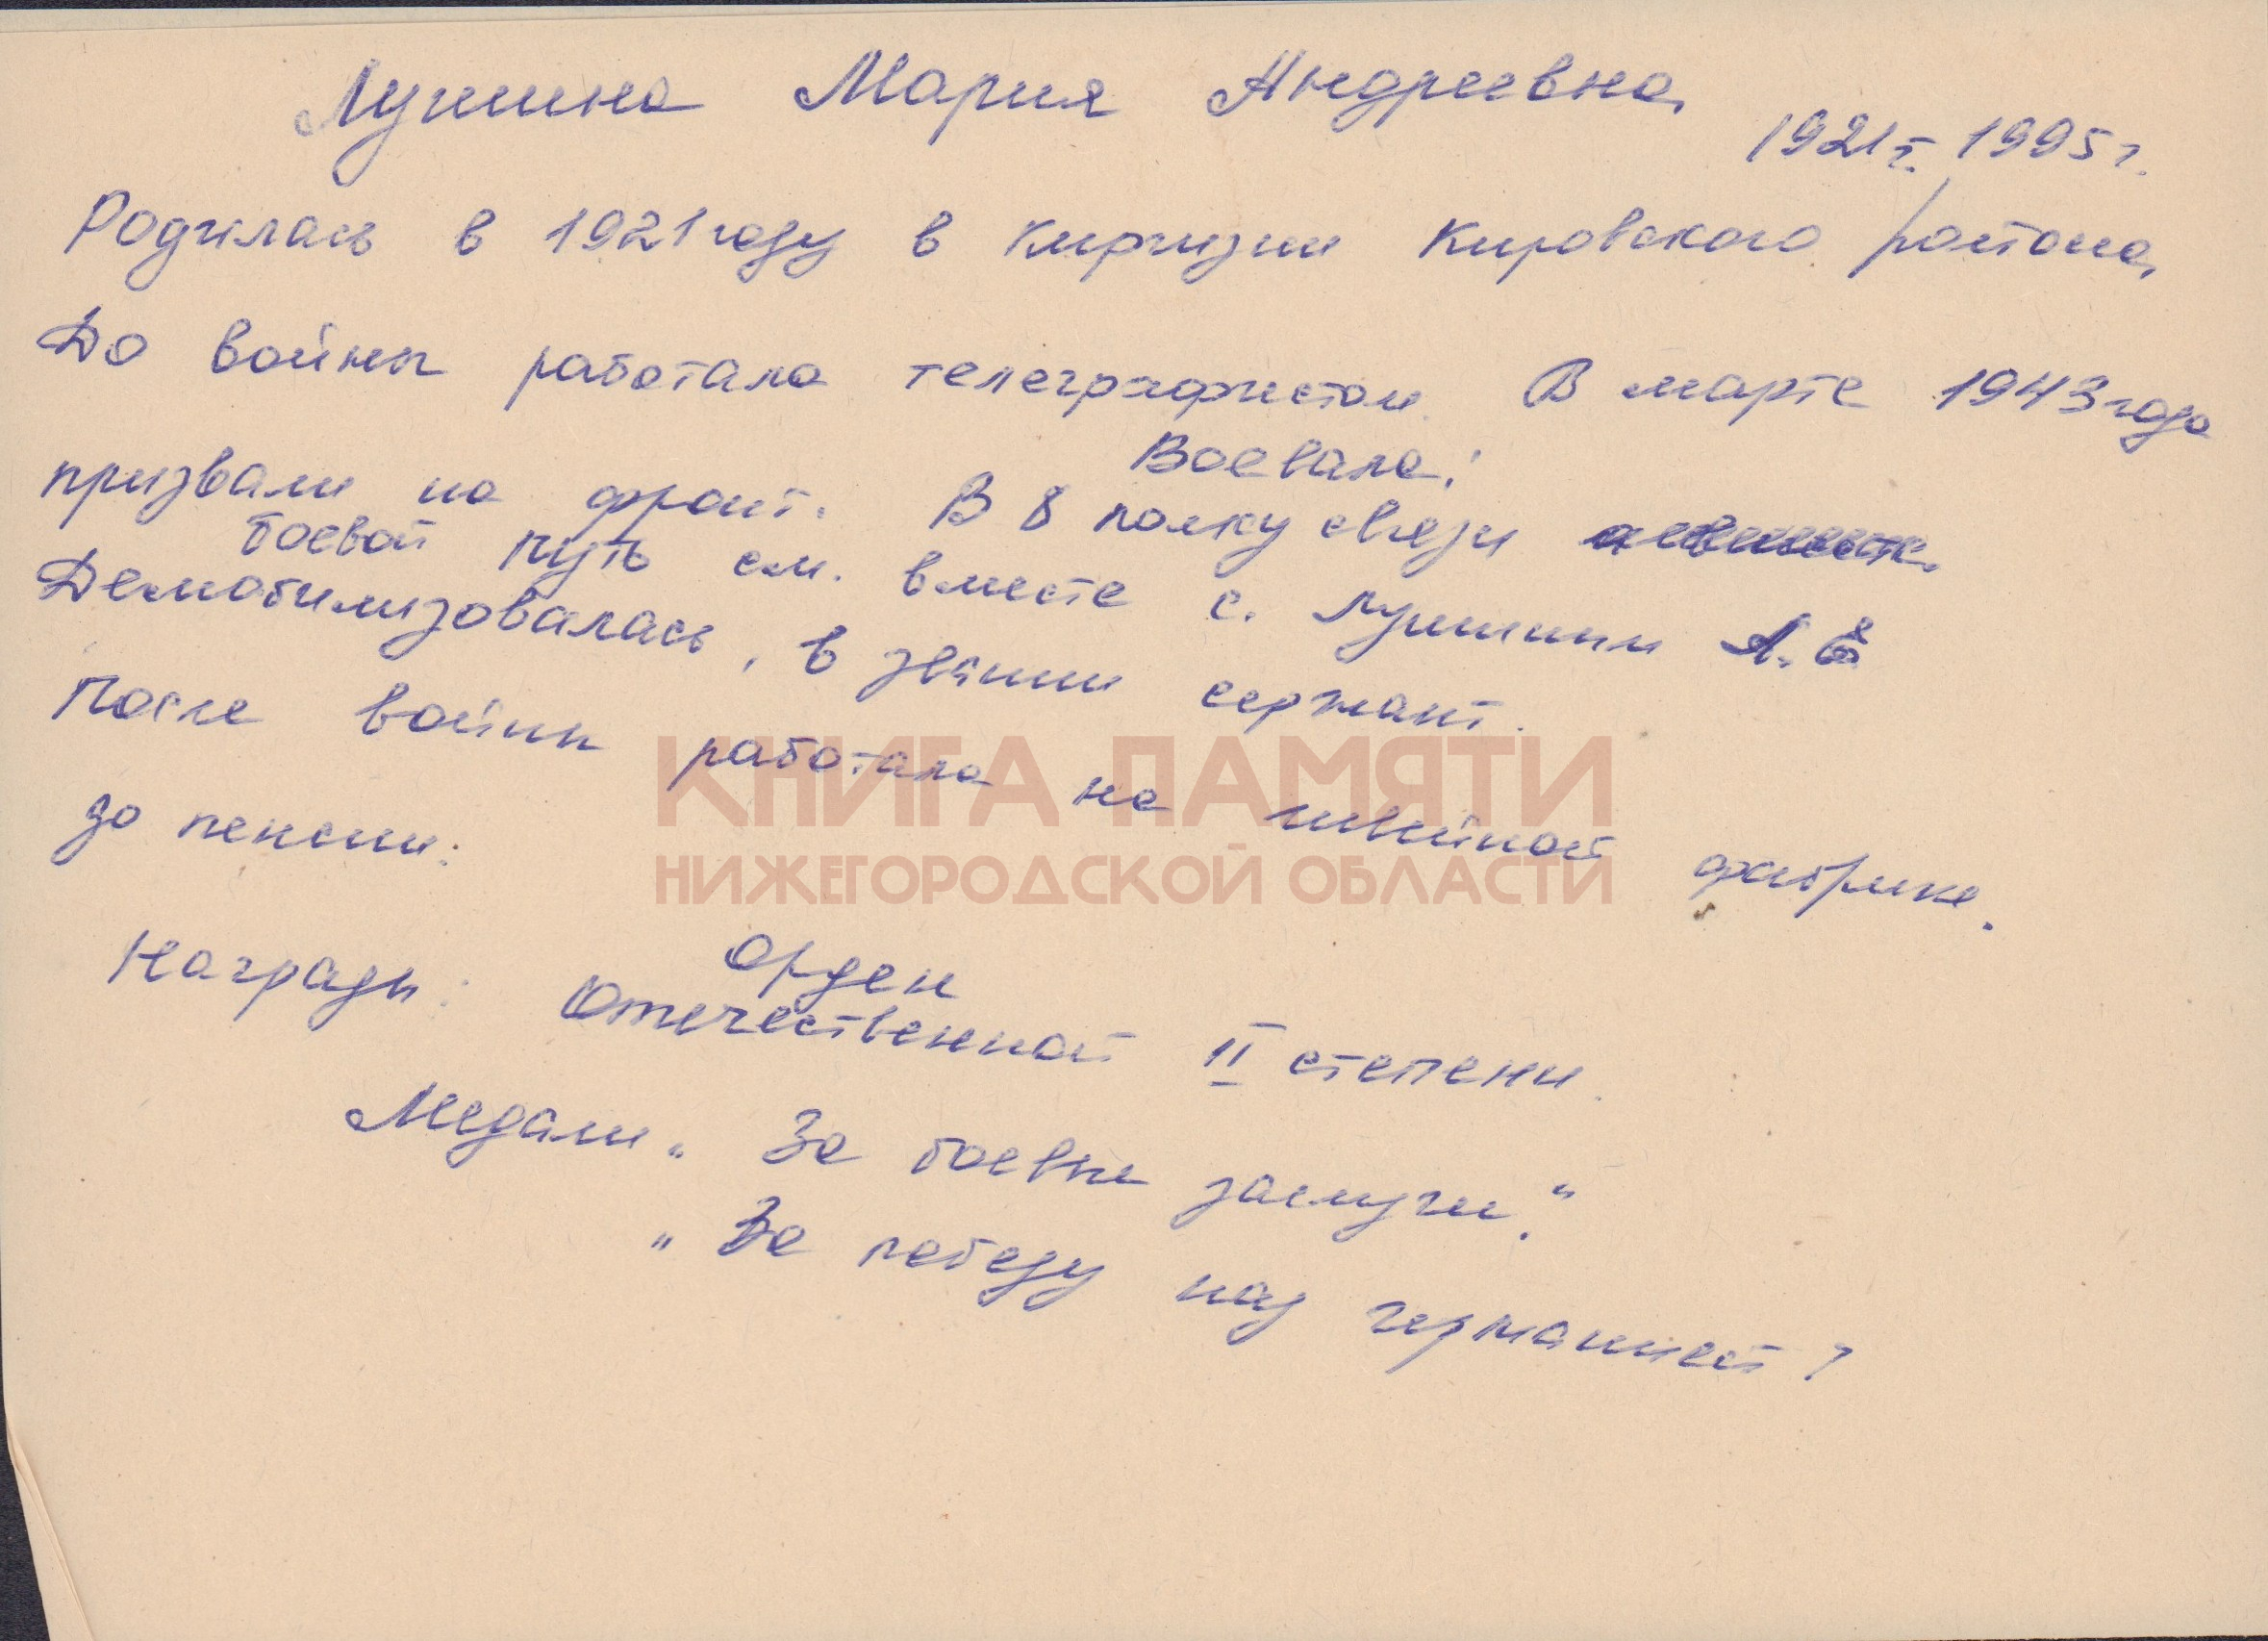 Лушина Мария Андреевна
1921г. 1995г.
Родилась в 1921 году в Киргизии Кировского района
До войны работала телеграфистом. В марте 1943 года
Воевала:
призвали на фронт. В 8 полку связи
боевой путь см. вместе с. Лушиным А.
Демобилизовалась, в звании сержант.
После войны работала на швейной фабрике.
до пенсии.
КНИГА ПАМЯТИ
НИЖЕГОРОДСКОЙ ОБЛАСТИ
Орден
Награды: Отечественной II степени.
Медали „За боевые заслуги."
„За победу над германией"